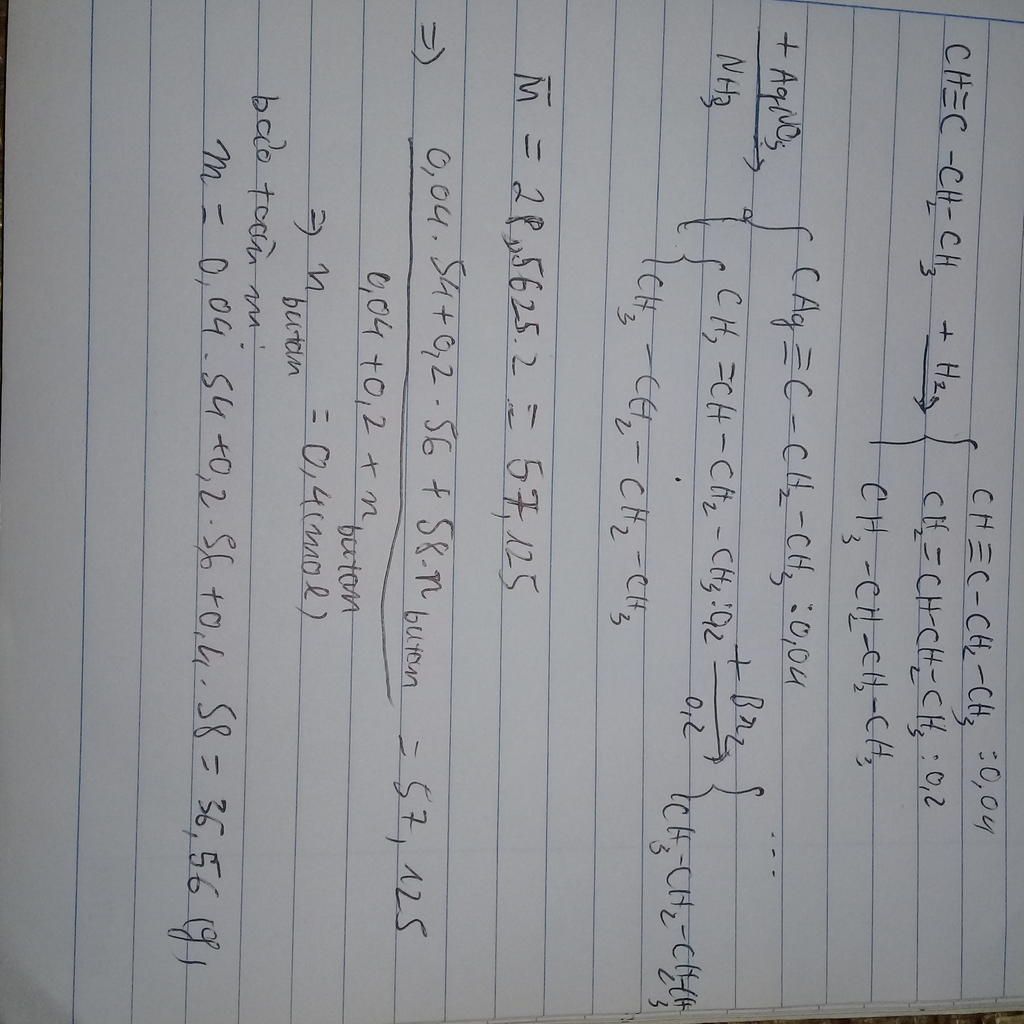 CH≡C-CH₂-CH₃ + H₂ → { CH≡C-CH₂-CH₃ : 0,04
CH₂=CH-CH₂-CH₃ : 0,2
CH₃-CH₂-CH₂-CH₃
+ AgNO₃ → NH₃ { CAg≡C-CH₂-CH₃ : 0,04
{ CH₂=CH-CH₂-CH₃ : 0,2 + Br₂ → 0,2 { ...
CH₃-CH₂-CH₂-CH₃ CH₃-CH₂-CH₂CH₃
M̄ = 28,5625.2 = 57,125
=> 0,04.54+0,2.56+58.n butan = 57,125
0,04+0,2+n butan
=> n butan = 0,4(mol)
bảo toàn m:
m = 0,04.54+0,2.56+0,4.58 = 36,56 (g)